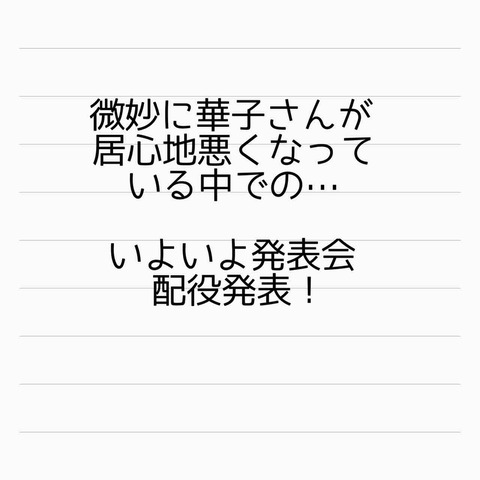 微妙に華子さんが
居心地悪くなって
いる中での…
いよいよ発表会
配役発表！